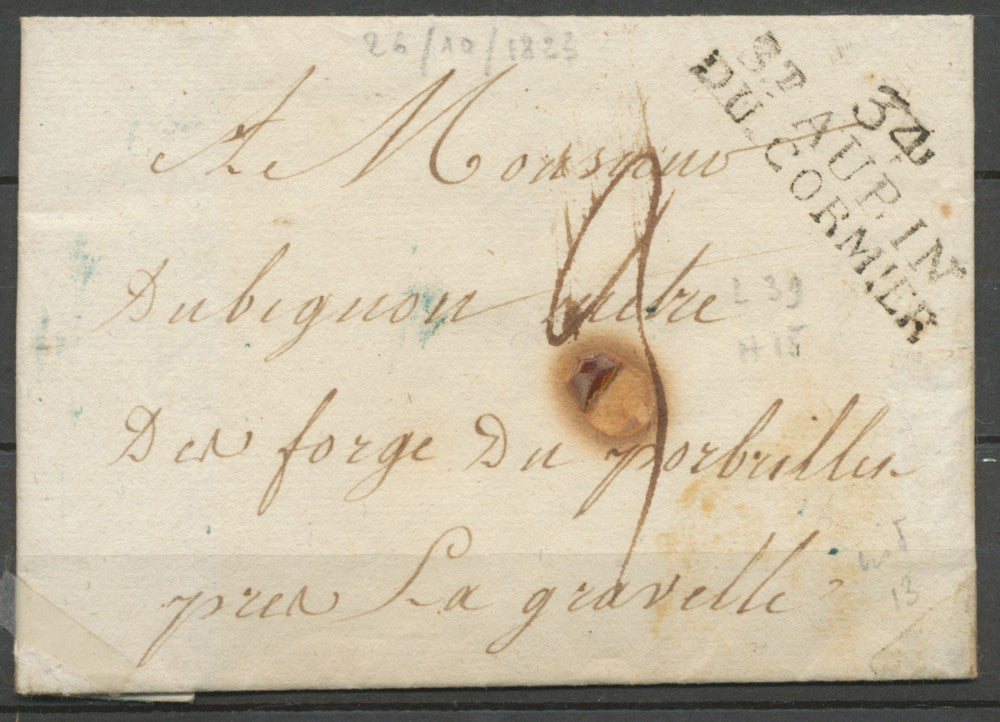 26/10/1823
34
ST AUBIN
DU-CORMIER
A Monsieur
Dubignon maitre
L 39
H 15
Des forge Du porbrillet
pres La gravelle
13